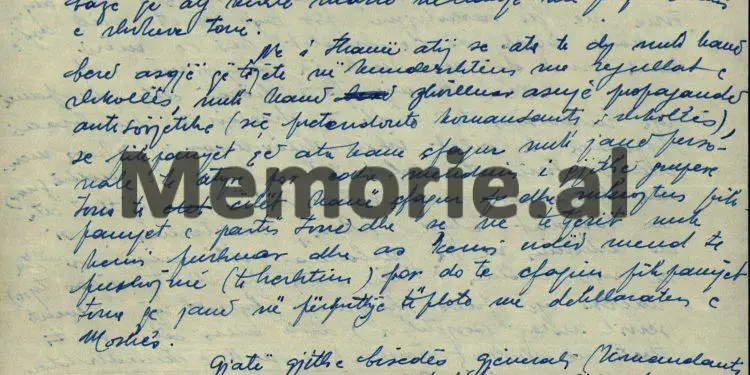 e shokëve tonë.
Ne i thamë atij se ata të dy nuk kanë
bërë asgjë që të jetë në kundërshtim me rregullat e
shkollës, nuk kanë zhvilluar asnjë propagandë
antisovjetike (siç pretendonte komandanti i shkollës),
se pikpamjet që ata kanë shfaqur nuk janë perso-
nale të tyre por edhe mendimi i gjithë grupere
tonë të cilët kanë shfaqur dhe mbrojtur pik-
pamjet e partis tonë dhe se ne të tjerët nuk
kemi pushuar dhe as kemi ndër mend të
pushojmë (të heshtim) por do të shfaqim pikpamjet
tona që janë në përputhje të plotë me deklaratën e
Moskës.
Gjatë gjithë bisedës gjenerali (komandanti
Memorie.al